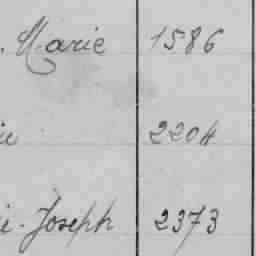 . Marie 1586
ie 2204
ie. Joseph 2373